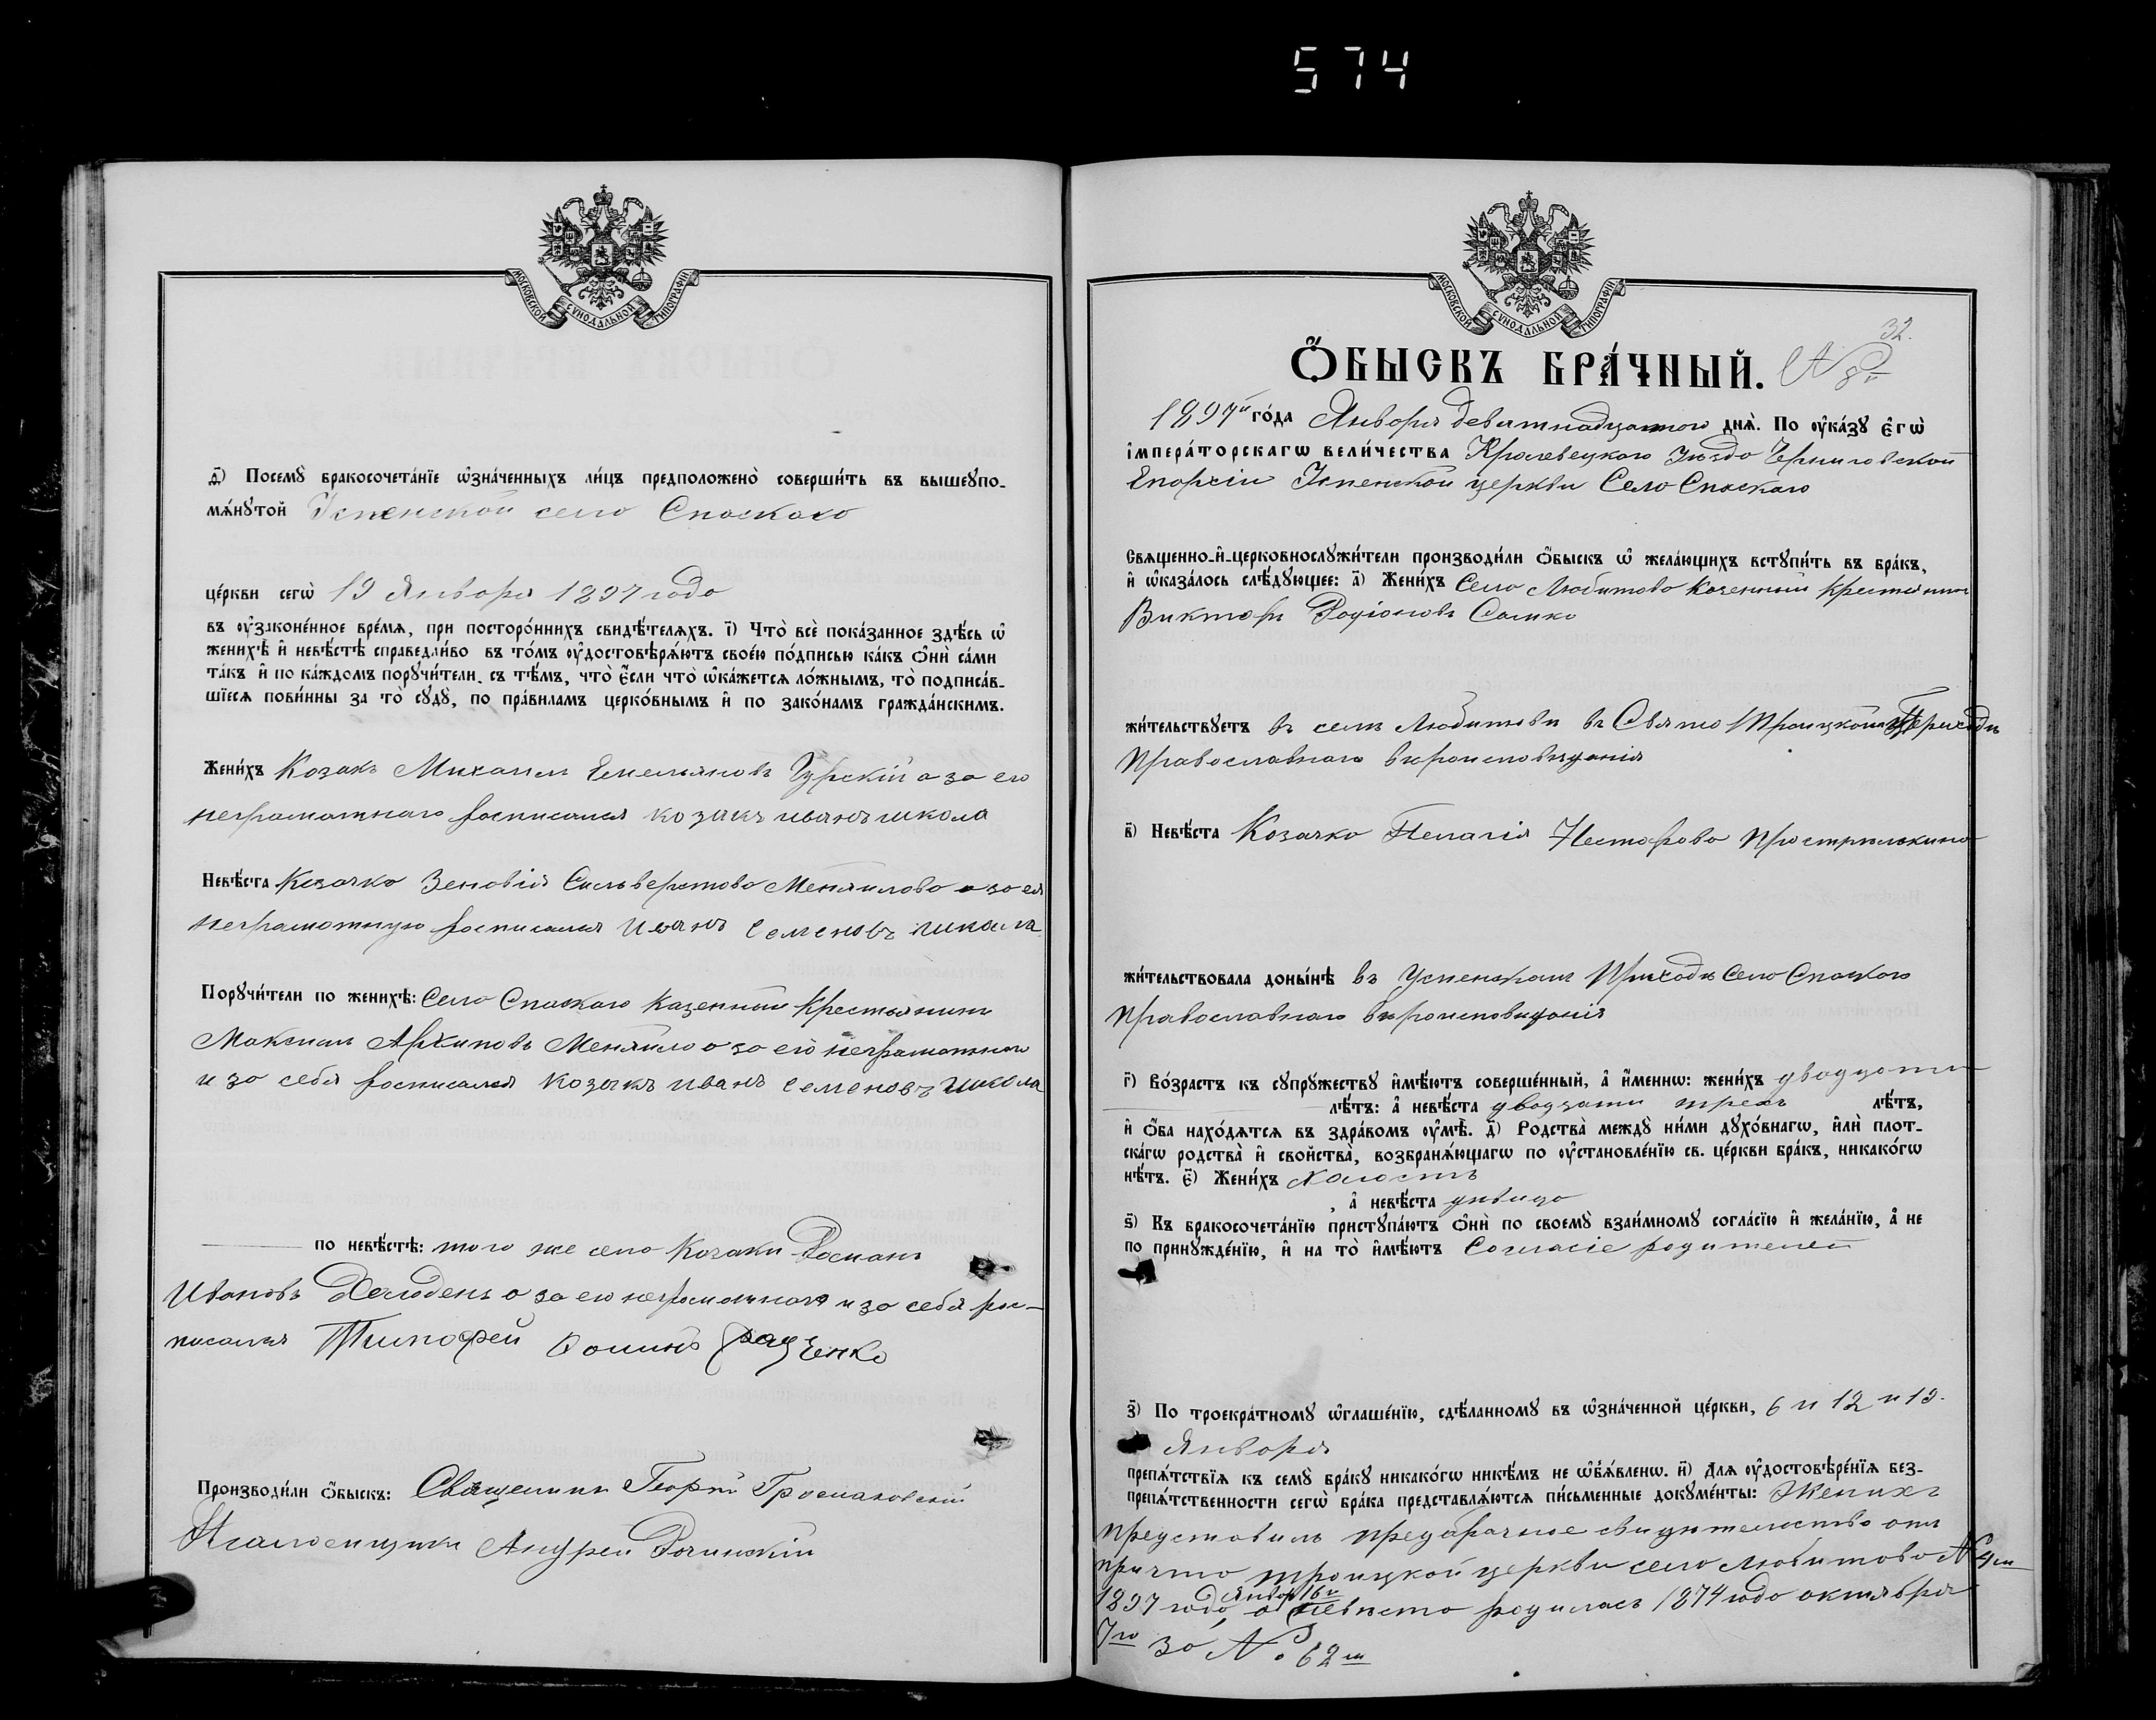 574
МОСКОВСКОЙ СѴНОДАЛЬНОЙ ТИПОГРАФІИ
д҃і) Посемꙋ̀ бракосочета́нїе ѡ҆зна́ченныхъ ли́цъ предположено̀ соверши́ть въ вышеꙋпо-
мѧ́нꙋтой Успенской село Спаского
це́ркви сегѡ̀ 19 Января 1897 года
въ ᲂу҆зако́ненное вре́мѧ, при посторо́ннихъ свидѣ́телѧхъ. і҃) Что̀ всѐ пока́занное здѣ́сь ѡ҆
женихѣ̀ и҆ невѣ́стѣ справедли́во въ то́мъ ᲂу҆достовѣрѧ́ютъ свое́ю по́дписью ка́къ ѻ҆нѝ са́ми
та́къ и҆ по ка́ждомъ порꙋчи́тели, съ тѣ́мъ, что̀ є҆́сли что̀ ѡ҆ка́жетсѧ ло́жнымъ, то̀ подписа́в-
шїесѧ пови́нны за то̀ сꙋдꙋ̀, по пра́виламъ церко́внымъ и҆ по зако́намъ гражда́нскимъ.
Жени́хъ Козакъ Михаилъ Емельяновъ Гурскій а за его
неграмотнаго росписался козакъ иванъ школа
Невѣ́ста Козачка Зеновія Сильверстова Меняйлова а за ея
неграмотную росписался Иванъ Семеновъ школа
Порꙋчи́тели по женихѣ̀: Село Спаского казенный крестьянинъ
Максимъ Архиповъ Меняйло а за его неграмотного
и за себя росписался козакъ иванъ семеновъ школа
по невѣ́стѣ: того же село Козаки Романъ
Ивановъ а за его неграмотнаго и за себя рос-
писался Тимофей Фоминъ Радченко
Производи́ли ѻ҆́быскъ: Священникъ Георгій
Псаломщикъ Андрей
МОСКОВСКОЙ СѴНОДАЛЬНОЙ ТИПОГРАФІИ
32.
Ѻ҆́БЫСКЪ БРА́ЧНЫЙ. № 8й
1897й го́да Января девятнадцатого днѧ̀. По ᲂу҆ка́зꙋ є҆гѡ̀
і҆мпера́торскагѡ вели́чества Кролевецкого уѣзда Черниговской
Епархіи Успенской церкви Село Спаского
Священно-и҆-церковнослꙋжи́тели производи́ли ѻ҆́быскъ ѡ҆ жела́ющихъ встꙋпи́ть въ бра́къ,
и҆ ѡ҆каза́лось слѣ́дꙋющее: а҃) Жени́хъ Село Любитово казенный крестьянинъ
Викторъ Родіоновъ Сашко
жи́тельствꙋетъ въ селѣ Любитовѣ въ Свято Троицкомъ Приходѣ
Православнаго вѣроисповѣданія
в҃) Невѣ́ста Козачка Пелагія Несторова Прострѣлькина
жи́тельствовала доны́нѣ въ Успенскомъ Приходѣ Село Спаского
Православнаго вѣроисповѣданія
г҃) Во́зрастъ къ сꙋпрꙋ́жествꙋ и҆мѣ́ютъ соверше́нный, а҆ и҆́меннѡ: жени́хъ двадцати
лѣ́тъ: а҆ невѣ́ста двадцати трехъ лѣ́тъ,
и҆ ѻ҆́ба нахо́дѧтсѧ въ здра́вомъ ᲂу҆мѣ̀. д҃) Родства̀ междꙋ̀ ни́ми дꙋхо́внагѡ, и҆лѝ плот-
ска́гѡ родства̀ и҆ свойства̀, возбранѧ́ющагѡ по ᲂу҆становле́нїю св. це́ркви бра́къ, никако́гѡ
нѣ́тъ. є҃) Жени́хъ холостъ
, а҆ невѣ́ста дѣвица
ѕ҃) Къ бракосочета́нїю пристꙋпа́ютъ ѻ҆нѝ по своемꙋ̀ взаи́мномꙋ согла́сїю и҆ жела́нїю, а҆ не
по принꙋжде́нїю, и҆ на то̀ и҆мѣ́ютъ Согласіе родителей
з҃) По троекра́тномꙋ ѡ҆глаше́нїю, сдѣ́ланномꙋ въ ѡ҆зна́ченной це́ркви, 6 и 12 и 19.
Января
препѧ́тствїѧ къ семꙋ̀ бра́кꙋ никако́гѡ никѣ́мъ не ѡ҆б̾ѧ́вленѡ. и҃) Длѧ ᲂу҆достовѣре́нїѧ без-
препѧ́тственности сегѡ̀ бра́ка представлѧ́ютсѧ пи́сьменные докꙋме́нты: Женихъ
представилъ предбрачное свидѣтельство отъ
причта троицкой церкви село Любитово № 4й
Январ 16й
1897 года, а невѣста родилась 1874 года октября
7го за № 62й